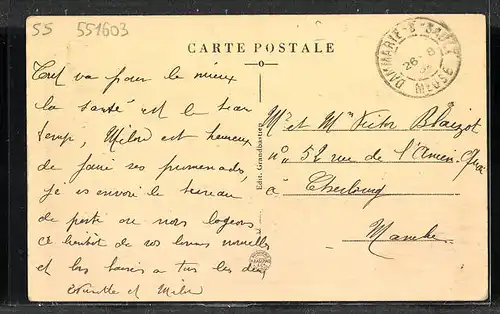 SS 551603
CARTE POSTALE
DAMMARIE-S-SAULX
26-8
MEUSE
Tout va pour le mieux
la santé est le beau
temps, Milou est heureux
de faire ses promenades,
je vs envoie le bureau
de poste ou nous logeons
à bientôt de vos bonnes nouvelles
et bons baisers à tus les deux
et Milou
Edit. Grandbastien
Mr et Mme Victor Blaizot
no 52 rue de l'Ancien Quai
à Cherbourg
Manche